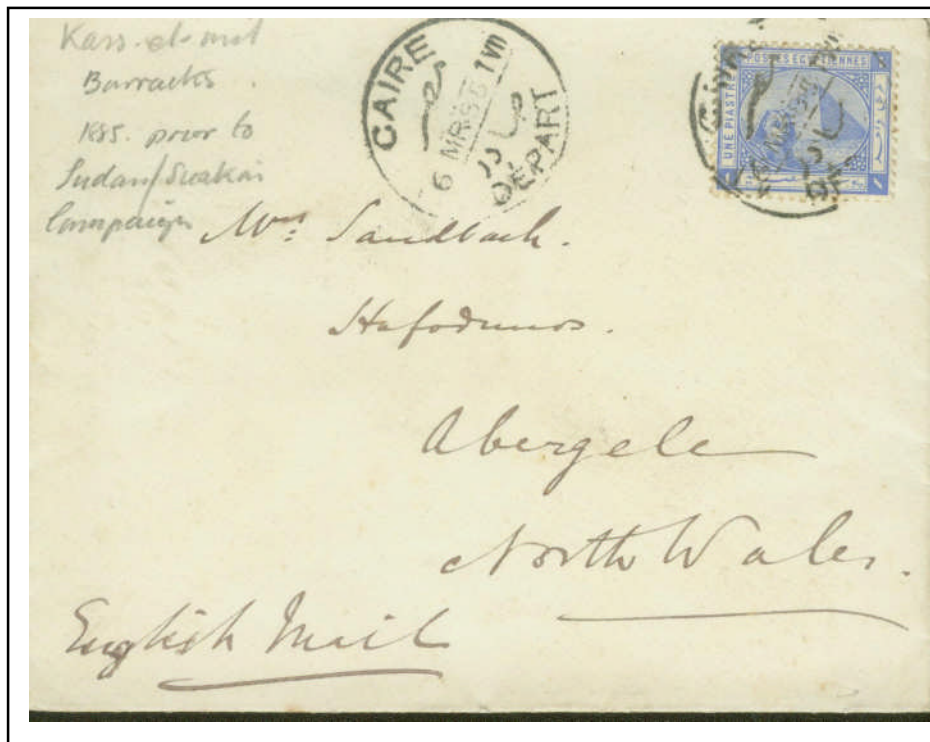 Kass-el-nil
Barracks.
1885. prior to
Sudan/Suakin
Campaign
CAIRE
6 MR 85 1 VII
DEPART
POSTES EGYPTIENNES
UNE PIASTRE
Mrs. Sandbach.
Hafodunos.
Abergele
North Wales.
English Mail